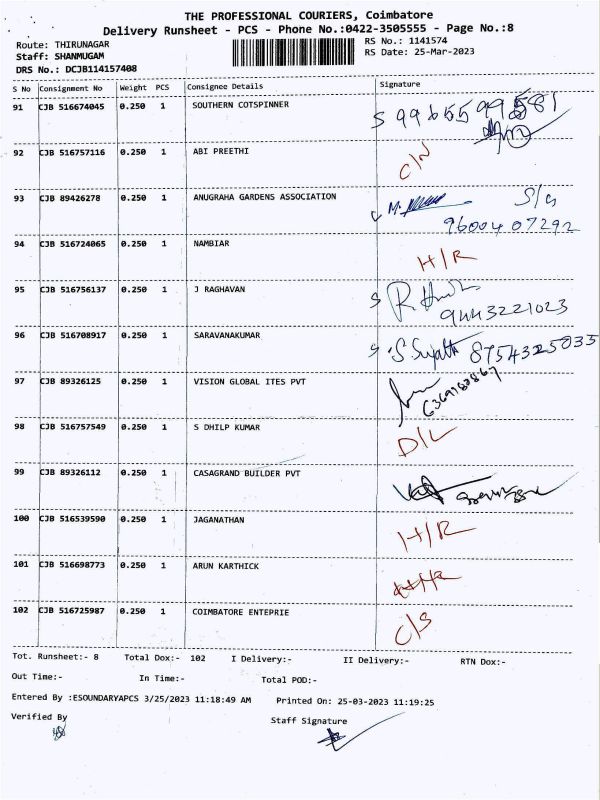 THE PROFESSIONAL COURIERS, Coimbatore
Delivery Runsheet - PCS - Phone No.:0422-3505555 - Page No.:8
Route: THIRUNAGAR
RS No.: 1141574
Staff: SHANMUGAM
RS Date: 25-Mar-2023
DRS No.: DCJB114157408
S No Consignment No Weight PCS Consignee Details Signature
91 CJB 516674045 0.250 1 SOUTHERN COTSPINNER
92 CJB 516757116 0.250 1 ABI PREETHI C/N
93 CJB 89426278 0.250 1 ANUGRAHA GARDENS ASSOCIATION
9600407292
94 CJB 516724065 0.250 1 NAMBIAR H/R
95 CJB 516756137 0.250 1 J RAGHAVAN
9443221023
96 CJB 516708917 0.250 1 SARAVANAKUMAR 8754325033
97 CJB 89326125 0.250 1 VISION GLOBAL ITES PVT
98 CJB 516757549 0.250 1 S DHILP KUMAR D/L
99 CJB 89326112 0.250 1 CASAGRAND BUILDER PVT
100 CJB 516539590 0.250 1 JAGANATHAN H/R
101 CJB 516698773 0.250 1 ARUN KARTHICK
102 CJB 516725987 0.250 1 COIMBATORE ENTEPRIE C/S
Tot. Runsheet:- 8 Total Dox:- 102 I Delivery:- II Delivery:- RTN Dox:-
Out Time:- In Time:- Total POD:-
Entered By :ESOUNDARYAPCS 3/25/2023 11:18:49 AM Printed On: 25-03-2023 11:19:25
Verified By Staff Signature